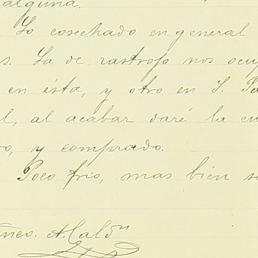 alguna.
Lo cosechado en general
s. La de rastrojo nos ocup
en ésta, y otro en S. Pa
l, al acabar daré la cu
o, y comprado.
Poco frio, mas bien s